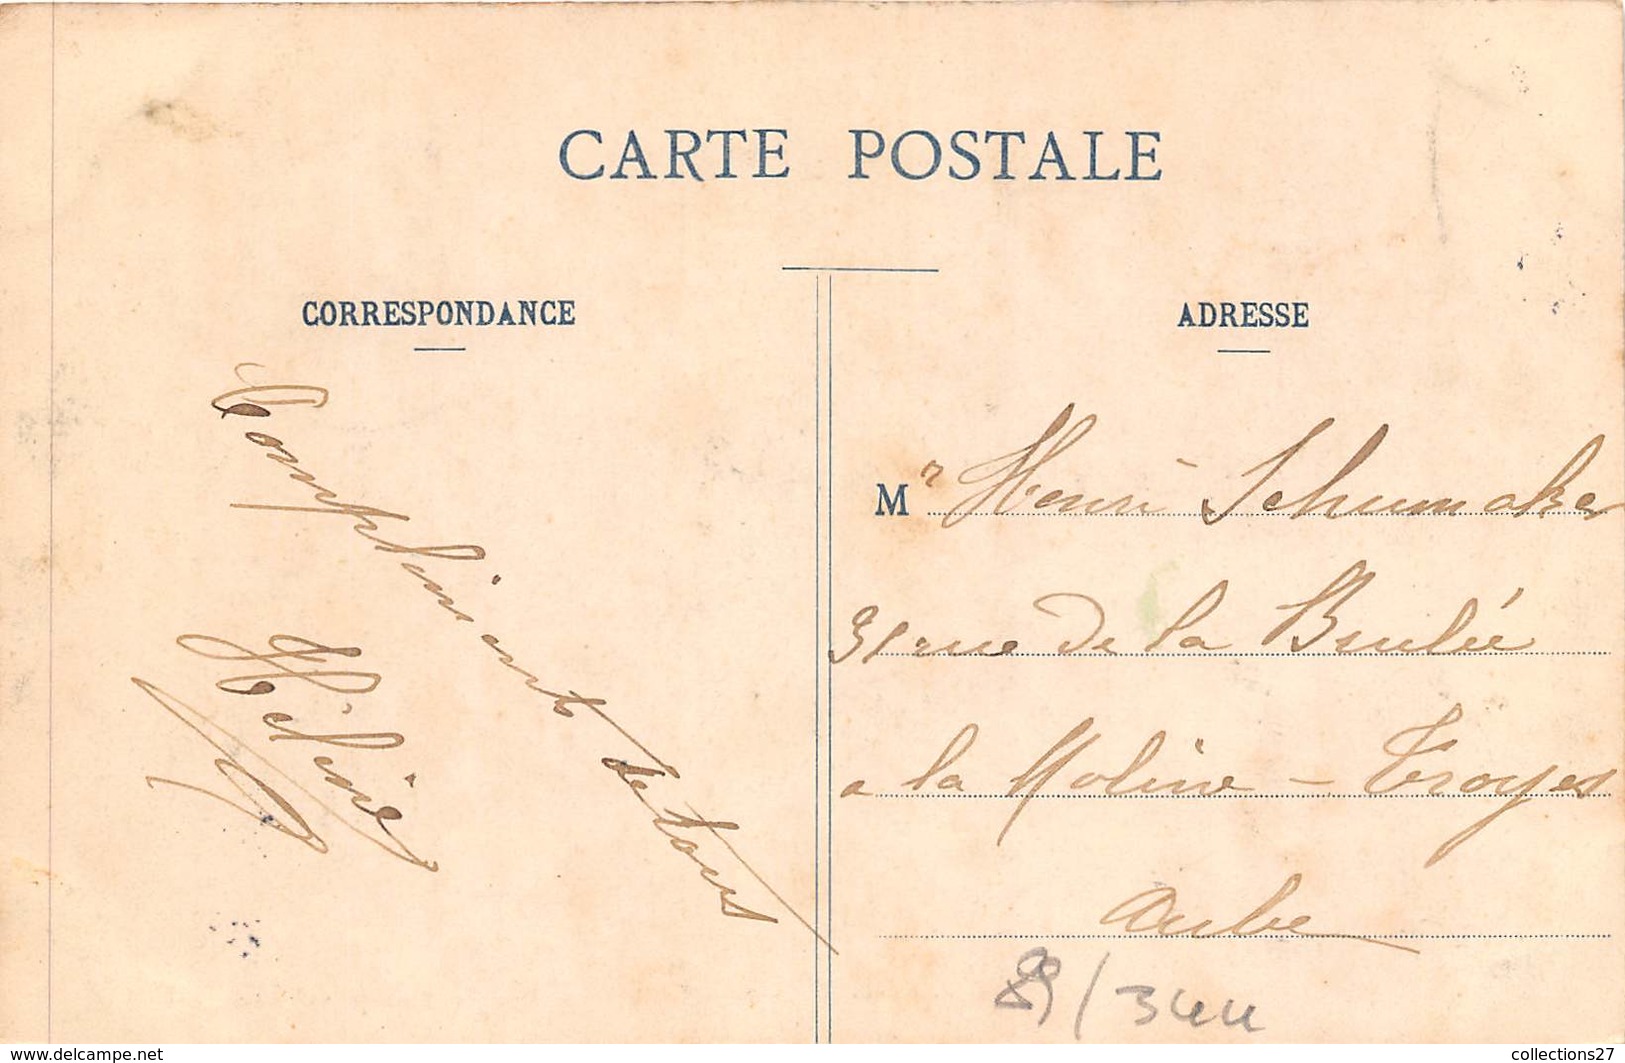 CARTE POSTALE
CORRESPONDANCE
Compliments de tous
Hélène
ADRESSE
Mr Henri Schumaker
31 rue de la Brulée
a la Moline - Troyes
Aube
89/344
www.delcampe.net
collections27